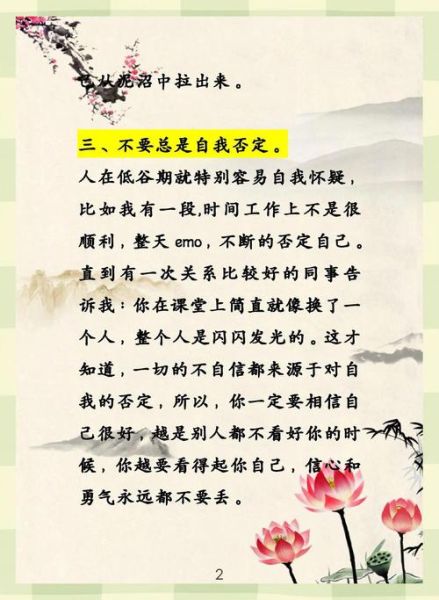 己从泥沼中拉出来。
三、不要总是自我否定。
人在低谷期就特别容易自我怀疑，
比如我有一段,时间工作上不是很
顺利，整天 emo，不断的否定自己。
直到有一次关系比较好的同事告
诉我：你在课堂上简直就像换了一
个人，整个人是闪闪发光的。这才
知道，一切的不自信都来源于对自
我的否定，所以，你一定要相信自
己很好，越是别人都不看好你的时
候，你越要看得起你自己，信心和
勇气永远都不要丢。
2